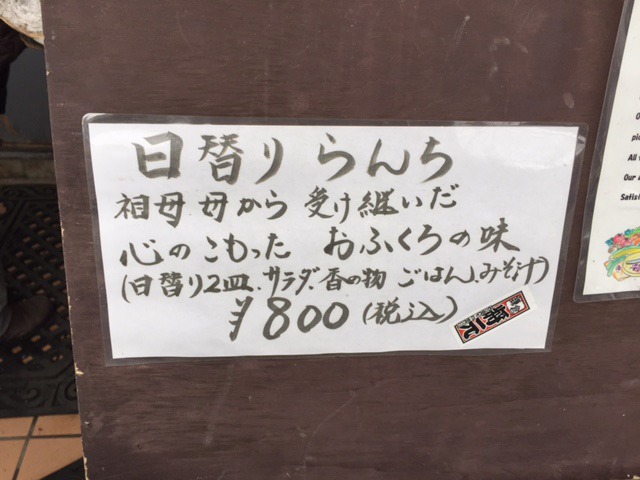 日替り らんち
祖母 母から 受け継いだ
心のこもった おふくろの味
(日替り2皿、サラダ 香の物 ごはん、みそ汁)
¥800(税込)
All
Our
Satis